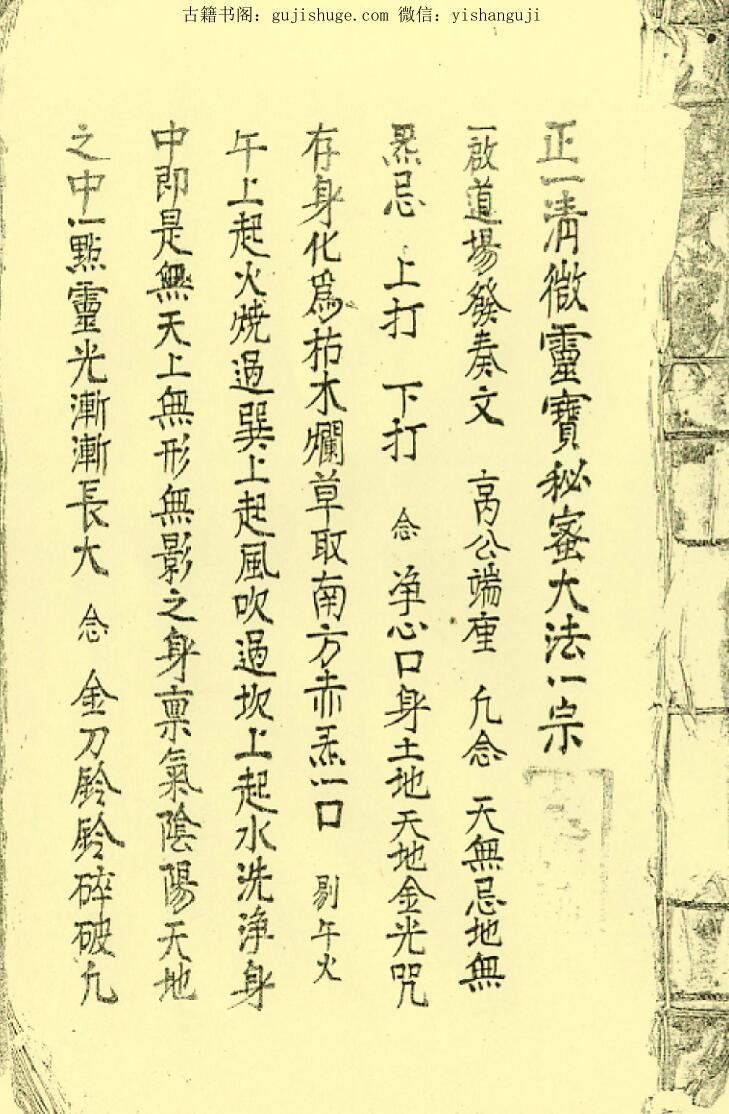 古籍书阁：gujishuge.com 微信：yishanguji
正一清微靈寶秘宻大法一宗
一啟道場發奏文 高公端座 凢念 天無忌地無
炁忌 上打 下打 念 净心口身土地天地金光咒
存身化爲枯木爛草取南方赤炁一口 剔午火
午上起火燒過巽上起風吹過坎上起水洗净身
中即是無天上無形無影之身禀氣陰陽天地
之中一點靈光漸漸長大 念 金刀鈴鈴碎破凢